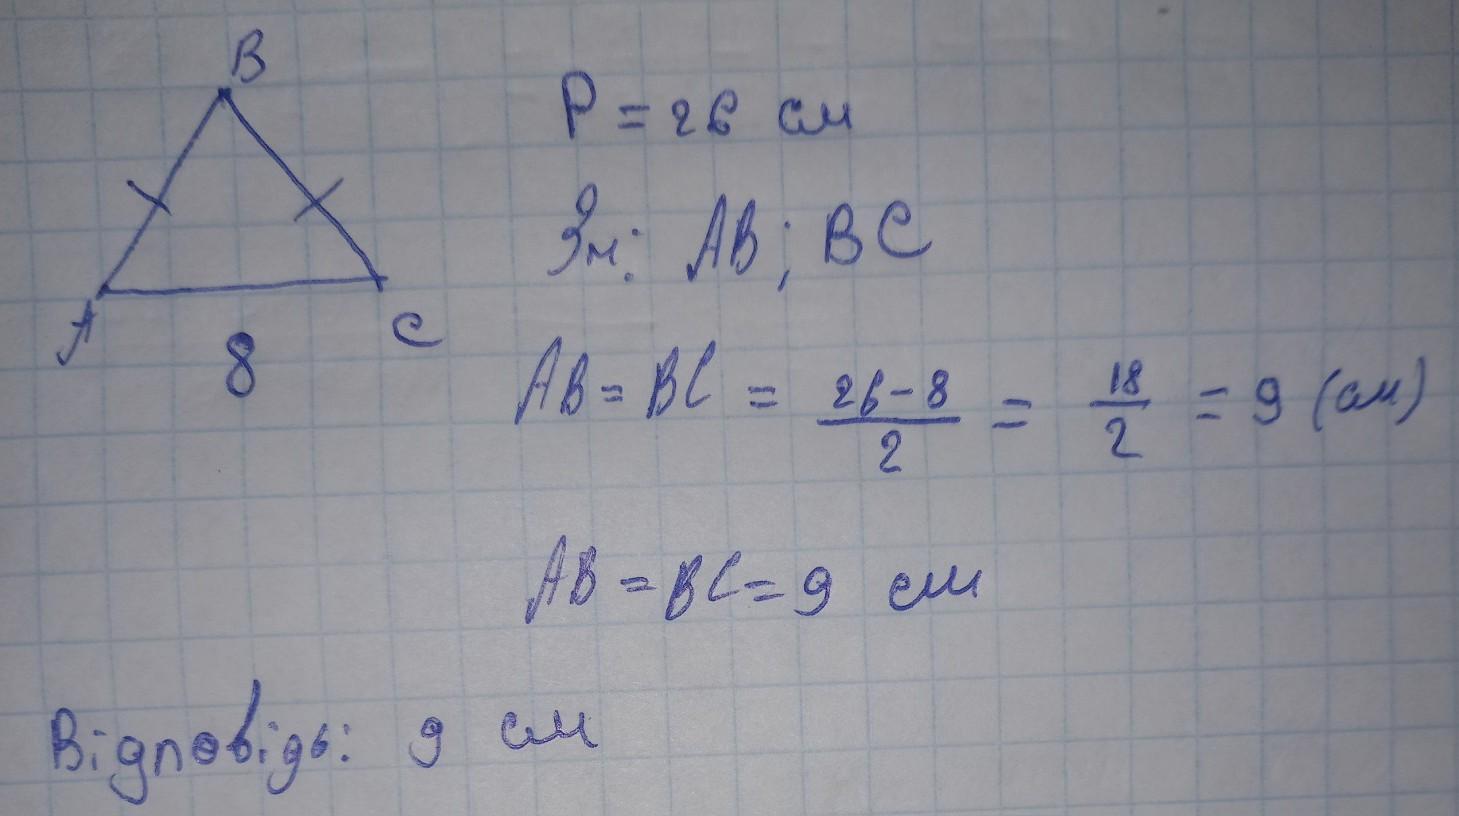 B
A
C
8
P = 26 см
Зн: AB; BC
AB = BC = \frac{26-8}{2} = \frac{18}{2} = 9 (см)
AB = BC = 9 см
Відповідь: 9 см